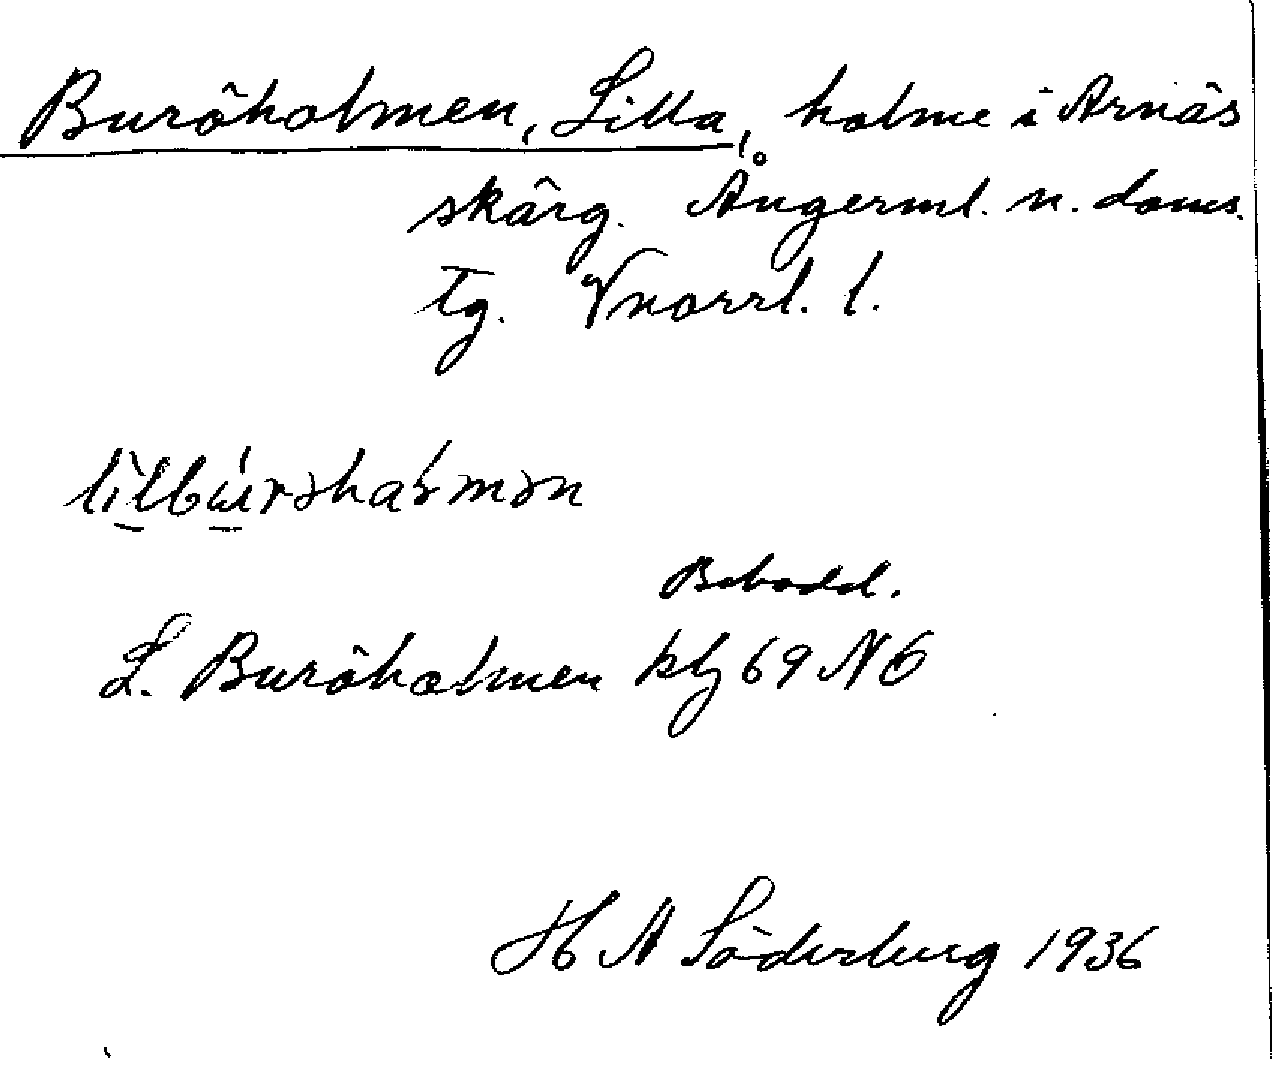 Buröholmen, Lilla, holme i Arnäs
skärg. Ångerml. n. doms.
tg. Vnorrl. l.
lìlbúrəhaɫmən
Bebodd.
L. Buröholmen kbl 69 NÖ
H A Söderberg 1936